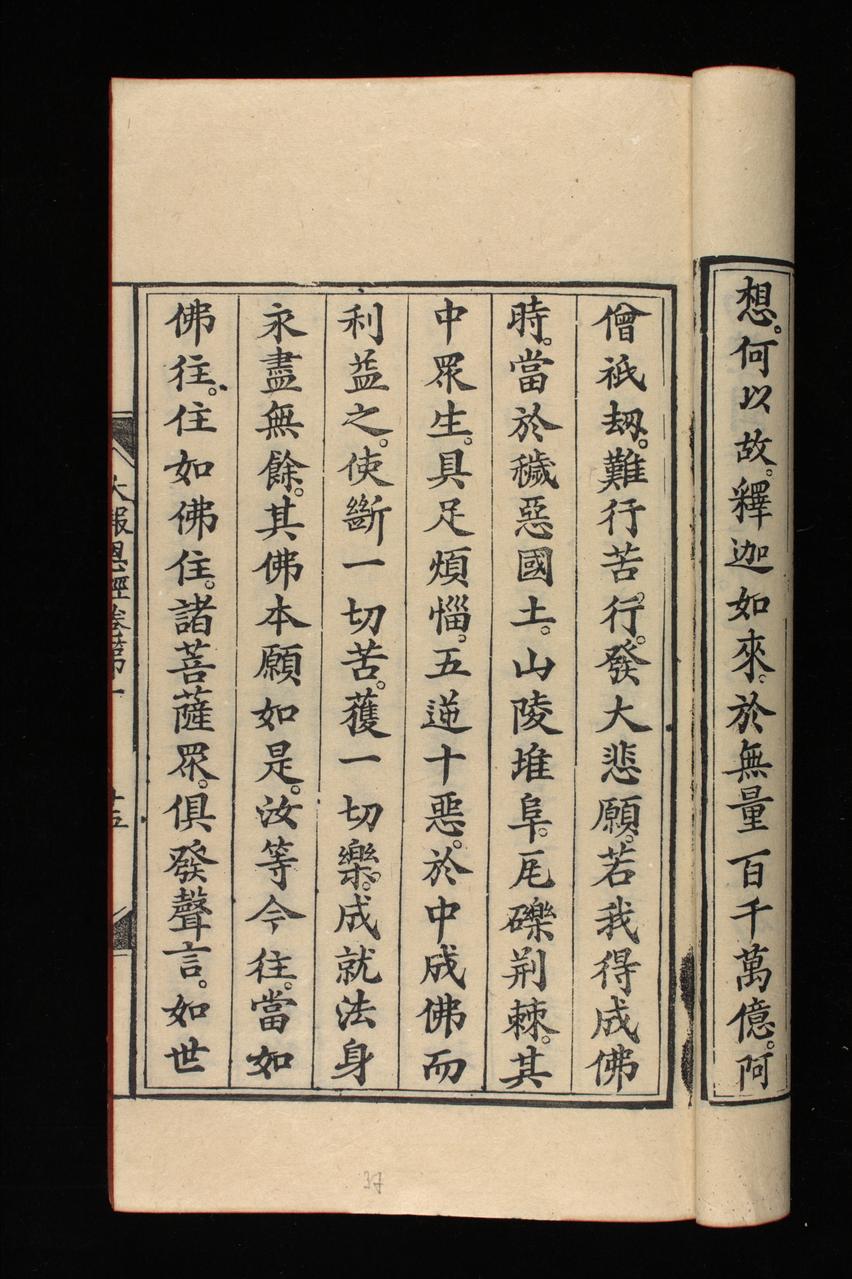 想。何以故。釋迦如來。於無量百千萬億。阿
僧祇劫。難行苦行。發大悲願。若我得成佛
時。當於穢惡國土。山陵堆阜。瓦礫荆棘。其
中眾生。具足煩惱。五逆十惡。於中成佛而
利益之。使斷一切苦。獲一切樂。成就法身
永盡無餘。其佛本願如是。汝等今往。當如
佛往。住如佛住。諸菩薩眾。俱發聲言。如世
大報恩經卷第一 十五
37